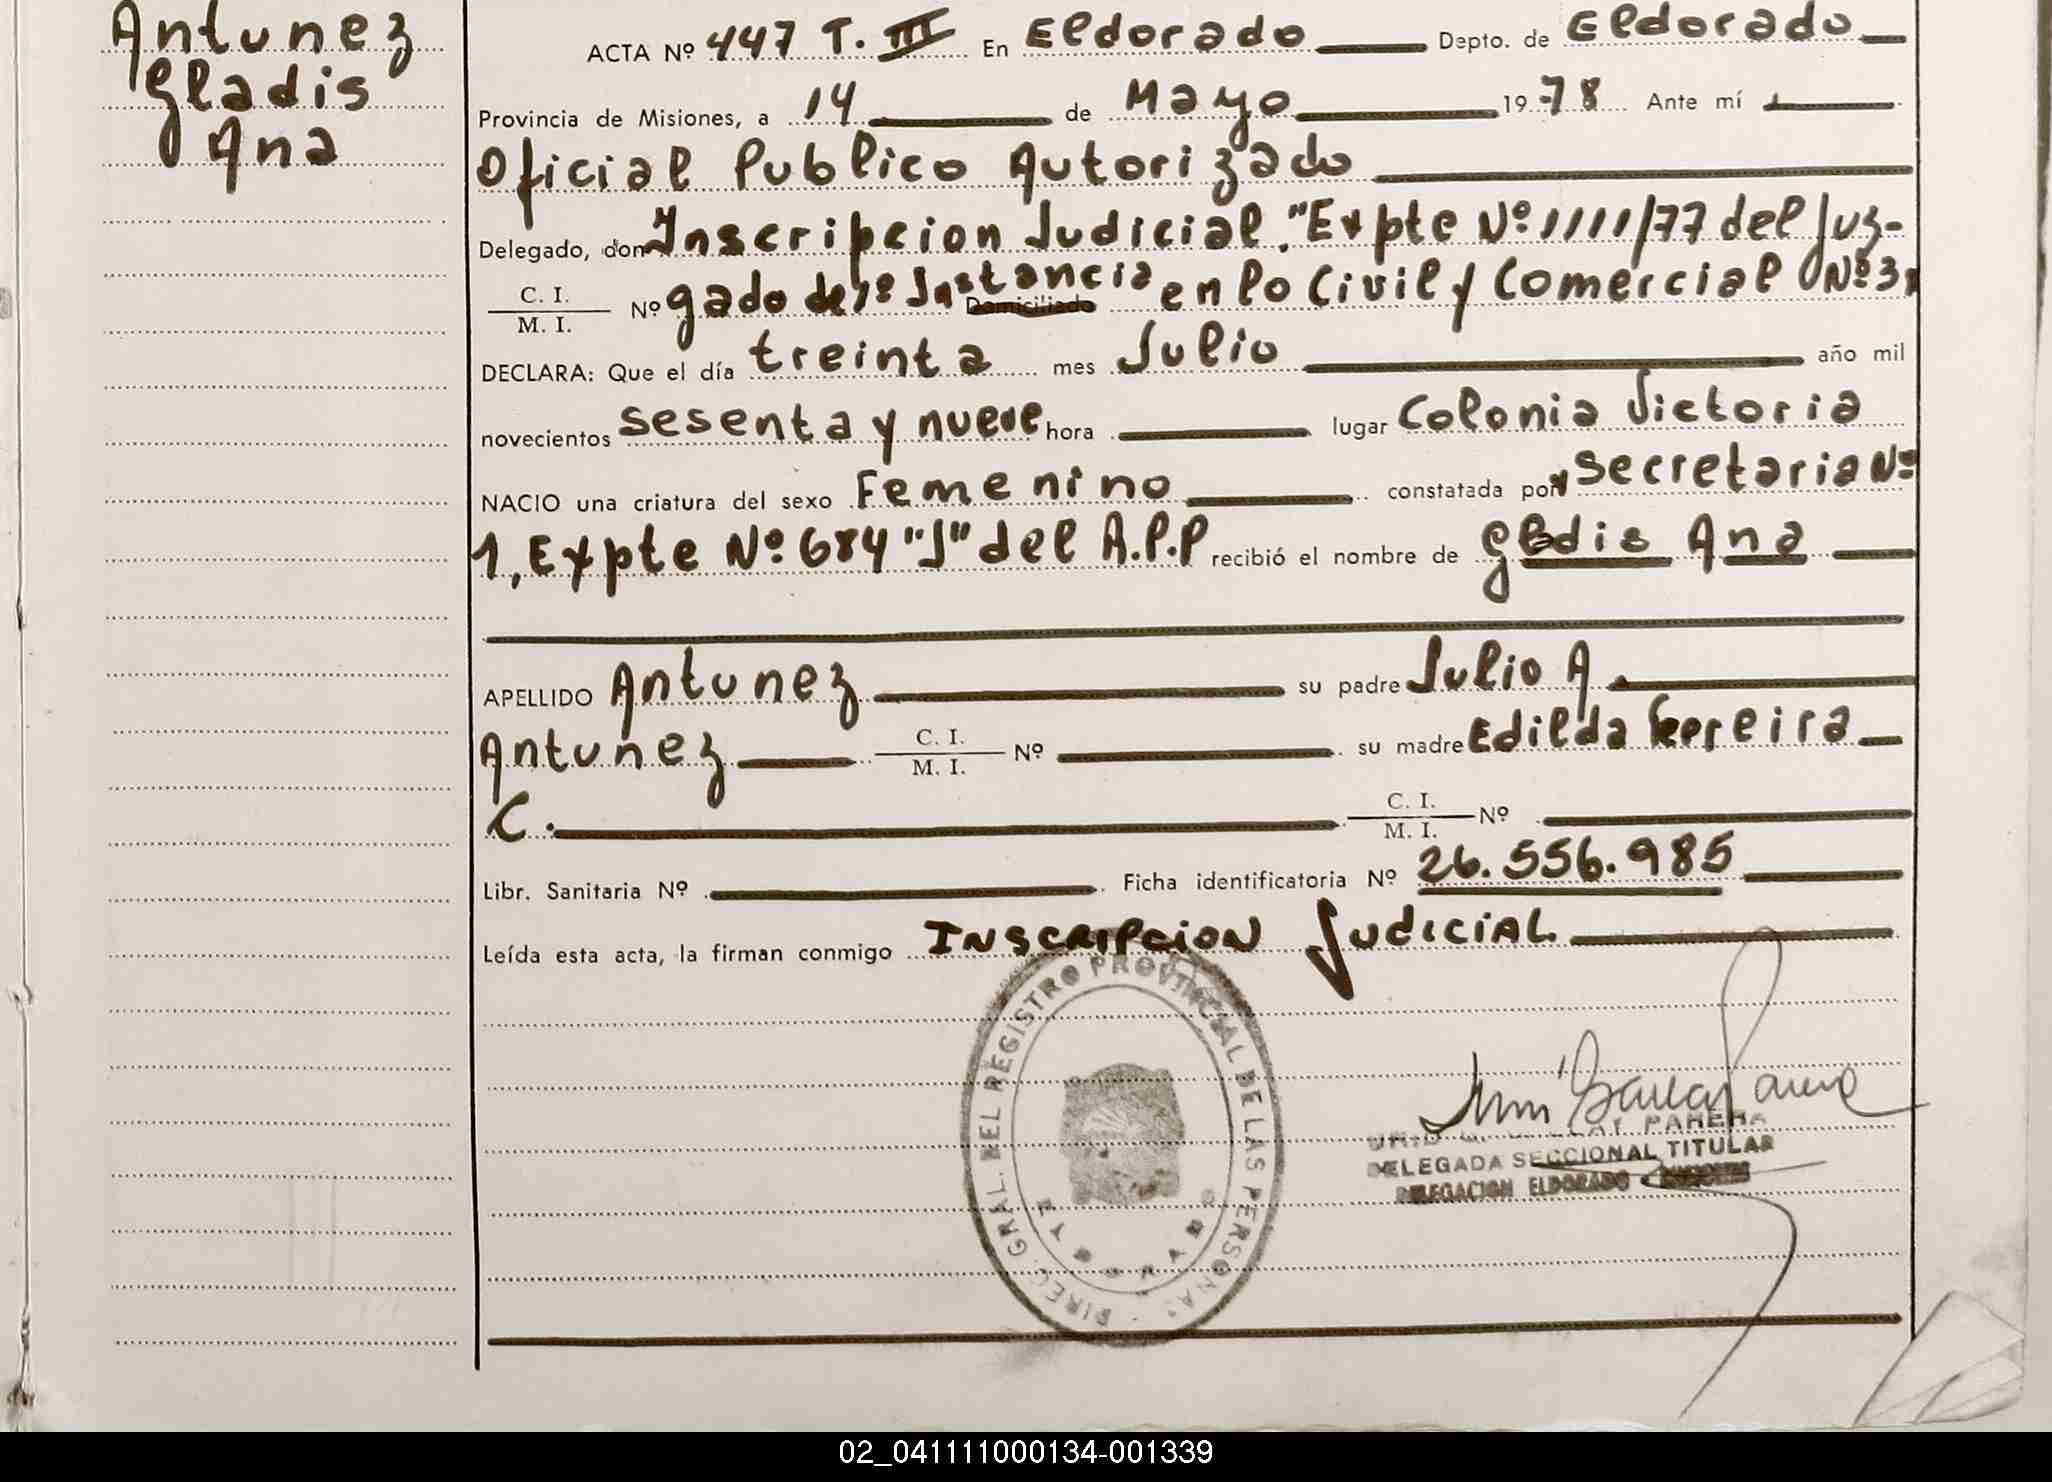 Antunez
Gladis
Ana
ACTA Nº 447 T. III En Eldorado Depto. de Eldorado
Provincia de Misiones, a 14 de Mayo 1978 Ante mí
Oficial Publico Autorizado
Delegado, don Inscripcion Judicial, "Expte Nº 1111/77 del Juz-
C. I.
M. I. Nº gado de 1º Instancia Domiciliado en lo Civil y Comercial Nº 3,
DECLARA: Que el día treinta mes Julio año mil
novecientos sesenta y nueve hora lugar Colonia Victoria
NACIO una criatura del sexo Femenino constatada por Secretaria Nº
1, Expte Nº 684 "J" del A.P.P recibió el nombre de Gladis Ana
APELLIDO Antunez su padre Julio A
Antunez C. I.
M. I. Nº su madre Edilda Ferreira
C. C. I.
M. I. Nº
Libr. Sanitaria Nº Ficha identificatoria Nº 26.556.985
Leída esta acta, la firman conmigo INSCRIPCION JUDICIAL.
DIREC. GRAL. DEL REGISTRO PROVINCIAL DE LAS PERSONAS
DELEGADA SECCIONAL TITULAR
DELEGACION ELDORADO
02_041111000134-001339